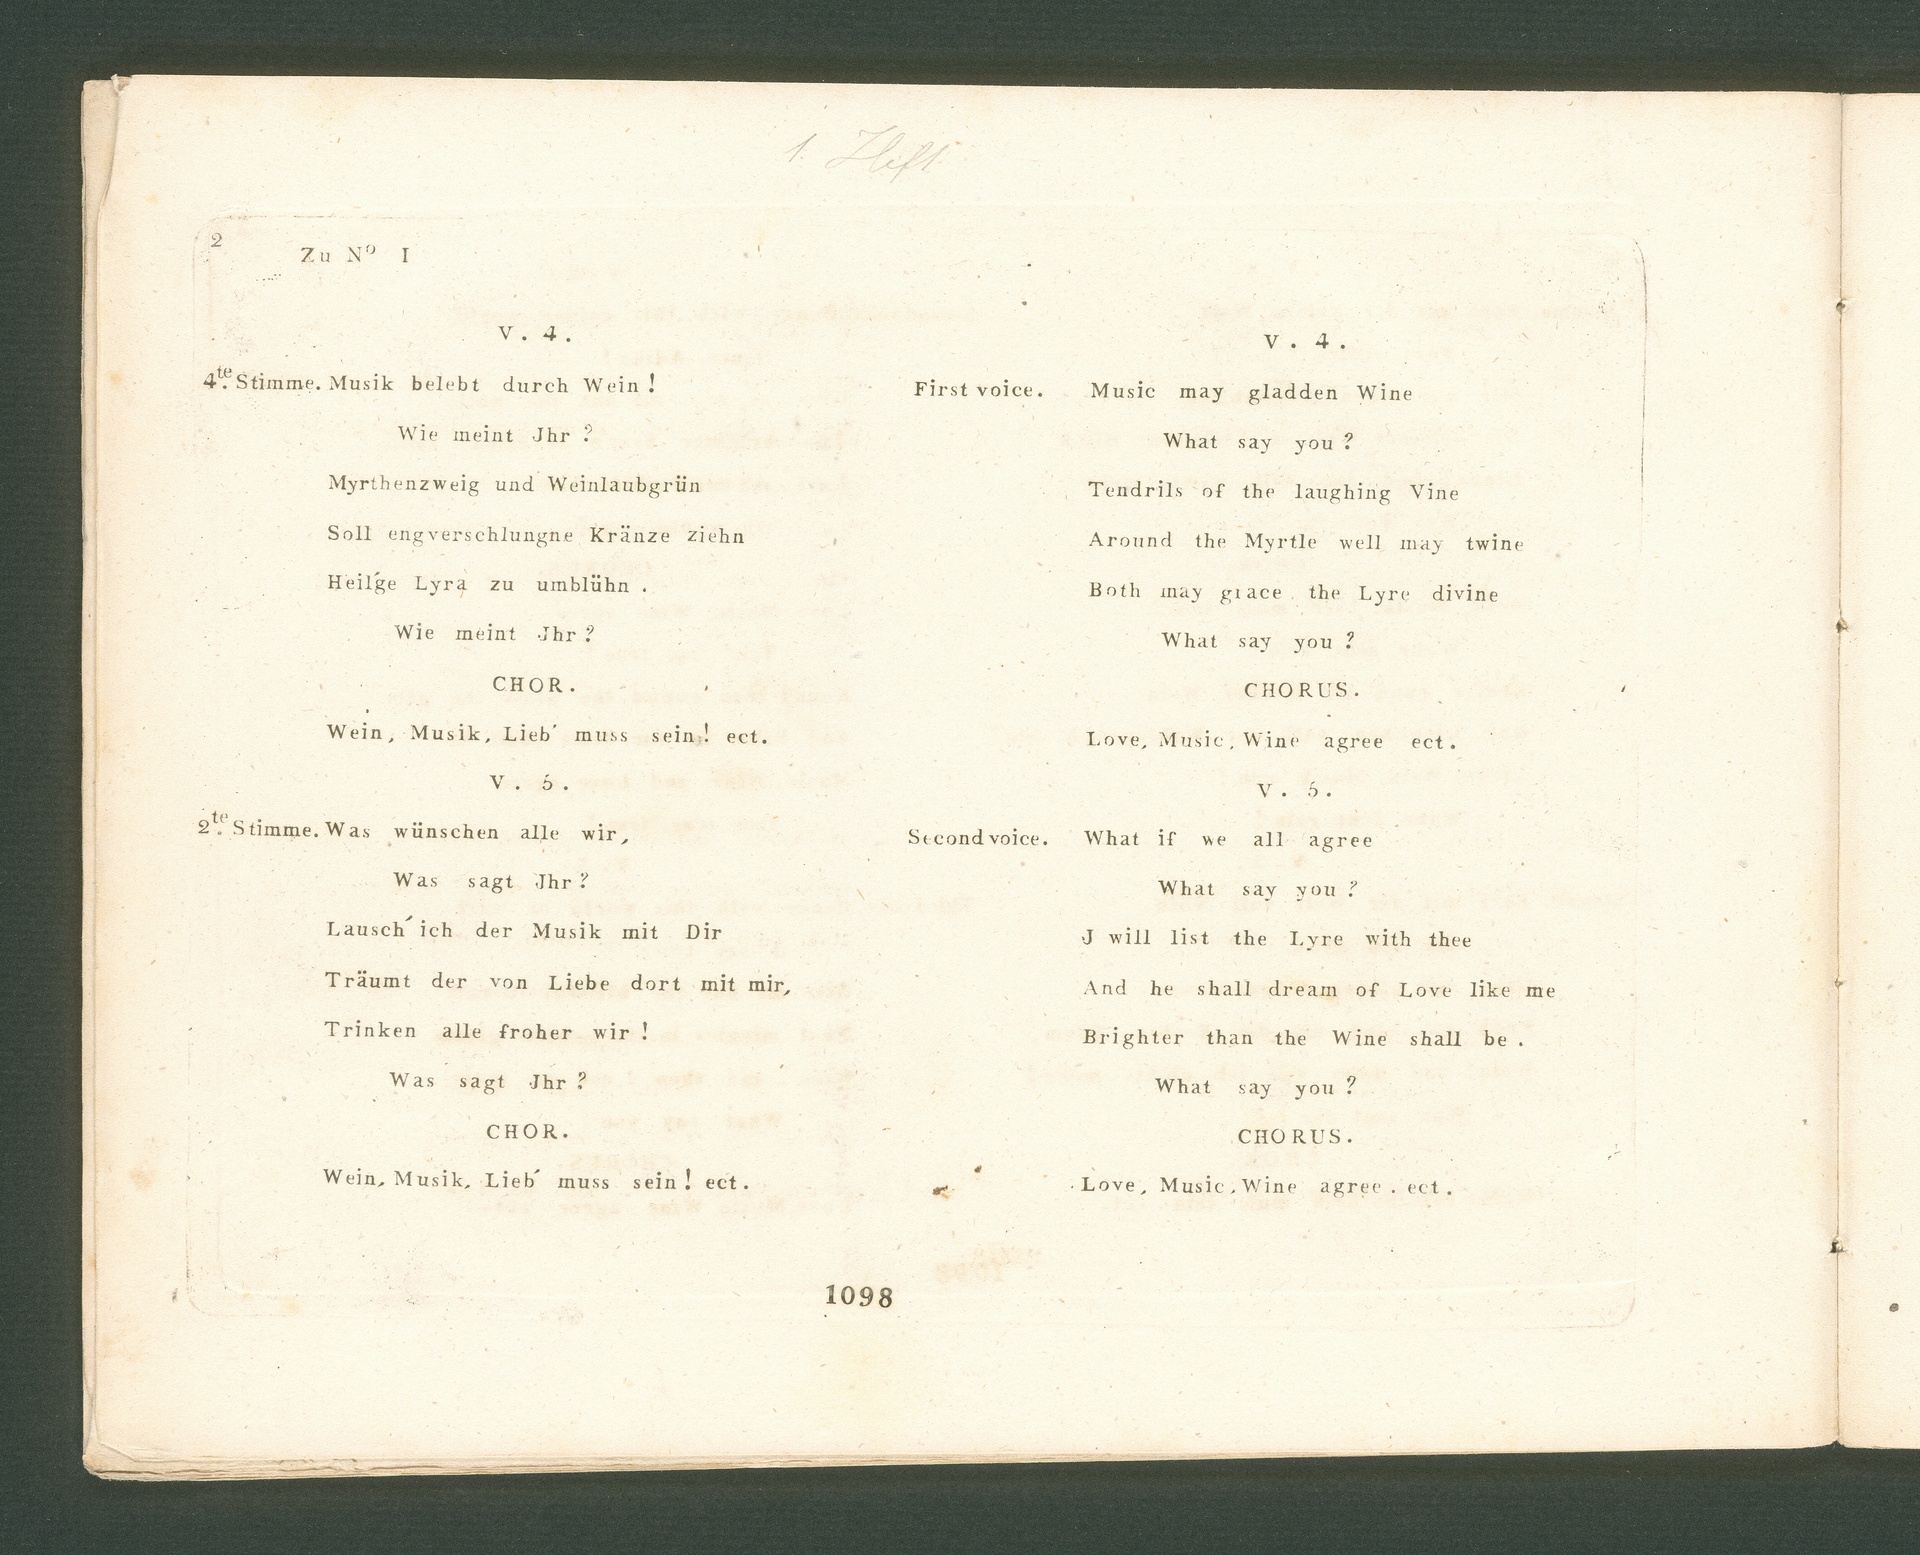 1. Heft
2
Zu Nº I
V. 4.
4te Stimme. Musik belebt durch Wein!
Wie meint Jhr?
Myrthenzweig und Weinlaubgrün
Soll engverschlungne Kränze ziehn
Heil'ge Lyra zu umblühn.
Wie meint Jhr?
CHOR.
Wein, Musik, Lieb' muss sein! ect.
V. 5.
2te Stimme. Was wünschen alle wir,
Was sagt Jhr?
Lausch' ich der Musik mit Dir
Träumt der von Liebe dort mit mir,
Trinken alle froher wir!
Was sagt Jhr?
CHOR.
Wein, Musik, Lieb' muss sein! ect.
V. 4.
First voice. Music may gladden Wine
What say you?
Tendrils of the laughing Vine
Around the Myrtle well may twine
Both may grace the Lyre divine
What say you?
CHORUS.
Love, Music, Wine agree ect.
V. 5.
Second voice. What if we all agree
What say you?
J will list the Lyre with thee
And he shall dream of Love like me
Brighter than the Wine shall be.
What say you?
CHORUS.
Love, Music, Wine agree. ect.
1098